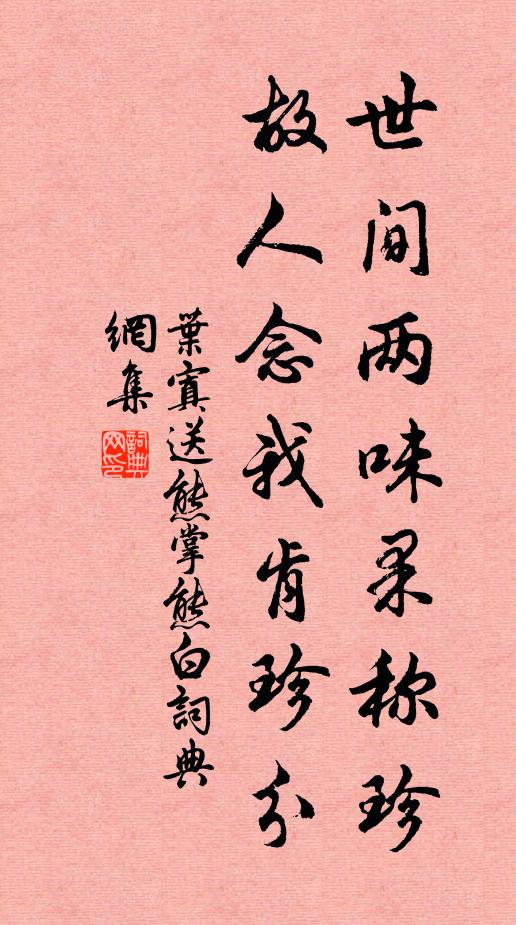 世间两味果称珍
故人念我肯珍分
葉寘送熊掌熊白詞典
網集
詞典網印